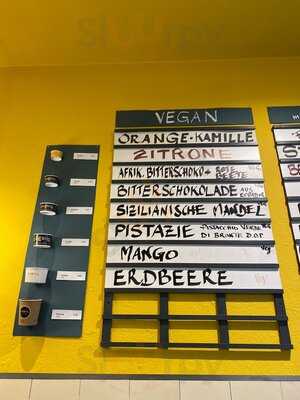 VEGAN
ORANGE-KAMILLE
ZITRONE
AFRIK. BITTERSCHOKO + ROTE BEETE
BITTERSCHOKOLADE AUS
SIZILIANISCHE MANDEL
PISTAZIE PISTACCHIO VERDE DI BRONTE D.O.P.
MANGO
ERDBEERE